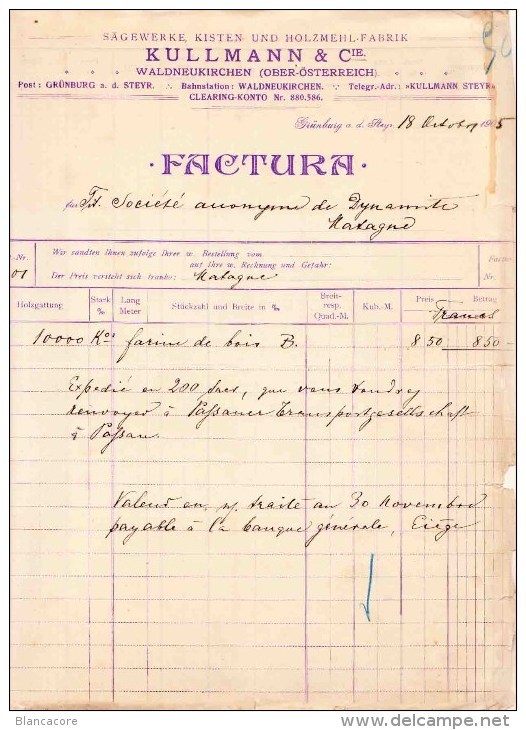 SÄGEWERKE, KISTEN UND HOLZMEHL-FABRIK
KULLMANN & CIE.
WALDNEUKIRCHEN (OBER-ÖSTERREICH)
Post: GRÜNBURG a. d. STEYR. Bahnstation: WALDNEUKIRCHEN. Telegr.-Adr.: »KULLMANN STEYR«
CLEARING-KONTO Nr. 880.586.
Grünburg a. d. Steyr, 18 October 1905
FACTURA
für Tit. Société anonyme de Dynamite
Matagne
Nr. 01
Wir sandten Ihnen zufolge Ihrer w. Bestellung vom
auf Ihre w. Rechnung und Gefahr:
Der Preis versteht sich franko: Matagne
Nr.
Holzgattung Stark Lang Meter Stückzahl und Breite in Breit- resp. Quad.-M. Kub.-M. Preis Betrag
Francs
10000 Kos farine de bois B. 8 50 850-
Expedié en 200 sacs, que vous voudrez
renvoyer à Passauer Transportgesellschaft
à Passau.
Valeur en n/ traite au 30 novembre
payable à la banque générale, Liège
Blancacore
www.delcampe.net